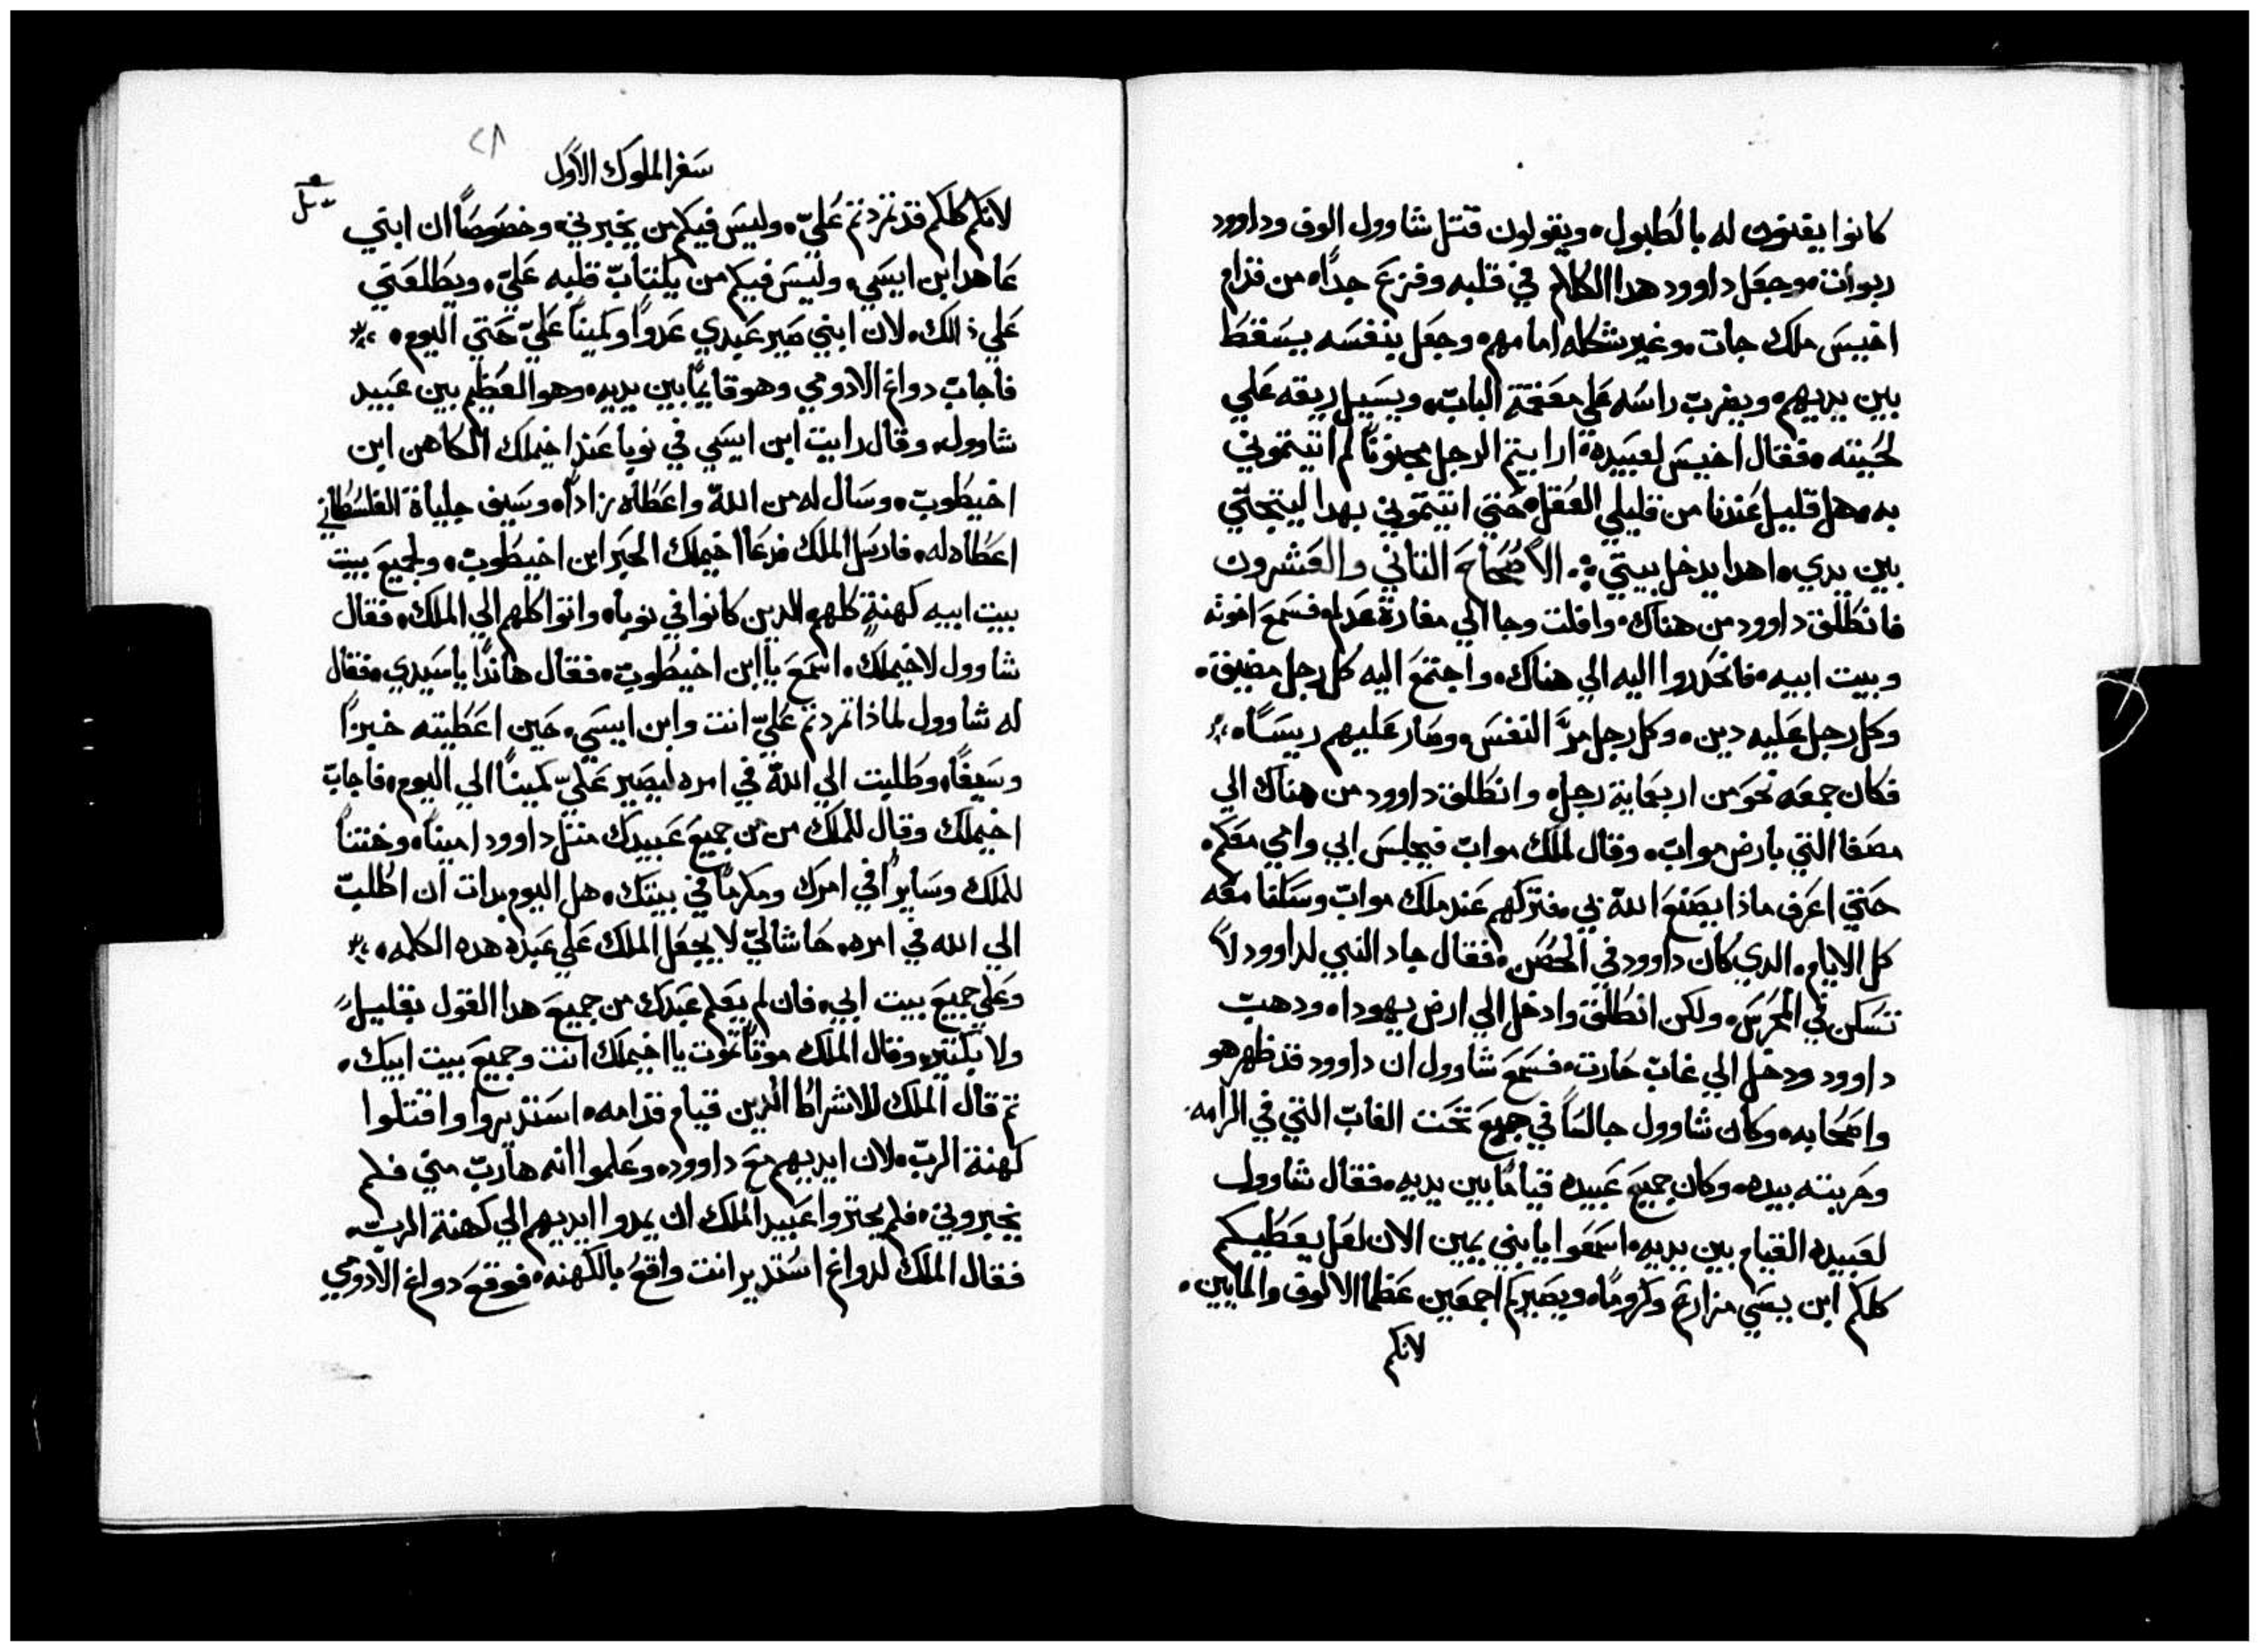 كانوا يقنتون له بالطبول، ويقولون قتل شاوول الوف وداوود
ربوات، وجعل داوود هدا الكلام في قلبه وفزع جداً، من قدام
اخيس ملك جات، وغير شكله امامهم، وجعل بنفسه يسقط
بين يديهم، ويضرب راسه علي صفحة الباب، ويسيل ريقه علي
لحيته، فقال اخيس لعبيده، ارايتم الرجل مجنوناً لم اتيتموني
به، هل قليل عندنا من قليلي العقل، حتي اتيتموني بهدا ليتجتي
بين يدي، اهدا يدخل بيتي، الاصحاح التاني والعشرون
فانطلق داوود من هناك، وافلت وجا الي مغارة عدلم، فسمع اخوته
وبيت ابيه، فانحدروا اليه الي هناك، واجتمع اليه كل رجل مضيق،
وكل رجل عليه دين، وكل رجل مرَّ النفس، وصار عليهم رييساً،
فكان جمعه نحو من اربعماية رجل، وانطلق داوود من هناك الي
مصفا التي بارض مواب، وقال لملك مواب فيجلس ابي وامي معكم،
حتي اعرف ماذا يصنع اللة بي، فتركهم عند ملك مواب وسكنا معه
كل الايام، الدي كان داوود في الحصن، فقال جاد النبي لداوود لا
تسكن في المحرس، ولكن انطلق وادخل الي ارض يهودا، ودهب
داوود ودخل الي غاب حارت، فسمع شاوول ان داوود قد ظهر هو
واصحابه، وكان شاوول جالساً في جبع تحت الغاب التي في الرامه،
وحربته بيده، وكان جميع عبيده قياماً بين يديه، فقال شاوول
لعبيده القيام بين يديه، اسمعوا يا بني يمين الان لعل يعطيكم
كلكم ابن يسي مزارع وكروماً، ويصيركم اجمعين عظما الالوف والمايين،
لانكم
٢٨
سفر الملوك الاول
لانكم كلكم قد تمردتم عليّ، وليس فيكم من يخبرني، وخصوصاً ان ابني
عاهد ابن ايسي، وليس فيكم من يكتاب قلبه عليّ، ويطلعني
علي ذالك، لان ابني صير عبدي عدواً وكميناً عليّ حتي اليوم،
فاجاب دواغ الادومي وهو قايماً بين يديه، وهو العظيم بين عبيد
شاوول، وقال رايت ابن ايسي في نوبا عند اخيملك الكاهن ابن
اخيطوب، وسال له من اللة واعطاه زاداً، وسيف جلياة الفلسطاني
اعطاه له، فارسل الملك فدعا اخيملك الحبر ابن اخيطوب، ولجميع بيت
بيت ابيه كهنةٍ كلهم الدين كانوا في نوبا، واتوا كلهم الي الملك، فقال
شاوول لاخيملك، اسمع يا ابن اخيطوب، فقال هاندا يا سيدي، فقال
له شاوول لماذا تمردتم عليّ انت وابن ايسي، حين اعطيته خبزاً
وسيفاً، وطلبت الي اللة في امره ليصير عليّ كميناً الي اليوم، فاجاب
اخيملك وقال للملك من من جميع عبيدك متل داوود اميناً، وختناً
للملك وسايراً في امرك ومكرماً في بيتك، هل اليوم بدات ان اطلب
الي الله في امره، حاشا لي لا يجعل الملك علي عبده هده الكلمه،
وعلي جميع بيت ابي، فان لم يعلم عبدك من جميع هدا القول بقليلٍ
ولا بكتير، وقال الملك موتاً تموت يا اخيملك انت وجميع بيت ابيك،
تم قال الملك للاشراط الدين قيام قدامه، استديروا واقتلوا
كهنة الرب، لان ايديهم مع داوود، وعلموا انه هارب مني فلم
يخبروني، فلم يجتروا عبيد الملك ان يمدوا ايديهم الي كهنة الرب،
فقال الملك لدواغ استدير انت واقع بالكهنه، فوقع دواغ الادومي